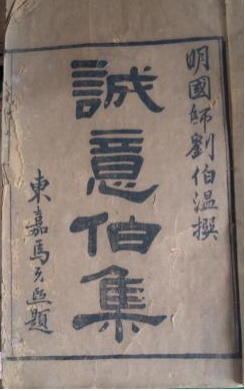 明國師劉伯温撰
誠意伯集
東嘉馬公愚題